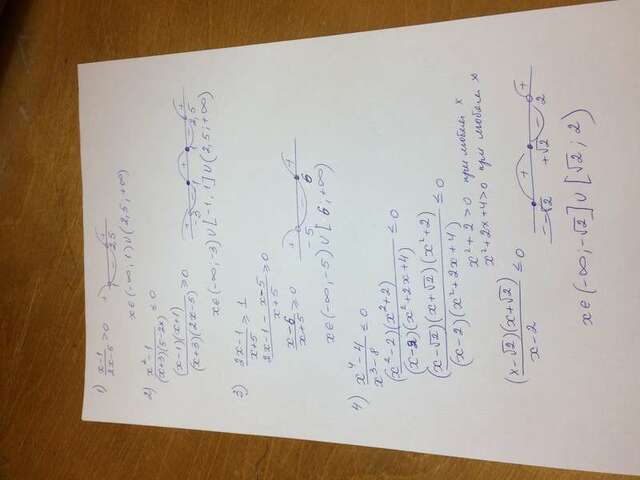 1) x-1/2x-5 > 0
+ 1 - 2,5 +
x∈(-∞;1)∪(2,5;+∞)
2) x²-1/(x+3)(5-2x) ≤ 0
(x-1)(x+1)/(x+3)(2x-5) ≥ 0
+ -3 - -1 + 1 - 2,5 +
x∈(-∞;-3)∪[-1,1]∪(2,5;+∞)
3) 2x-1/x+5 ≥ 1
2x-1-x-5/x+5 ≥ 0
x-6/x+5 ≥ 0
+ -5 - 6 +
x∈(-∞,-5)∪[6;+∞)
4) x⁴-4/x³-8 ≤ 0
(x²-2)(x²+2)/(x-2)(x²+2x+4) ≤ 0
(x-√2)(x+√2)(x²+2)/(x-2)(x²+2x+4) ≤ 0
x²+2>0 при любом x
x²+2x+4>0 при любом x
(x-√2)(x+√2)/x-2 ≤ 0
- -√2 + +√2 - 2 +
x∈(-∞;-√2]∪[√2;2)